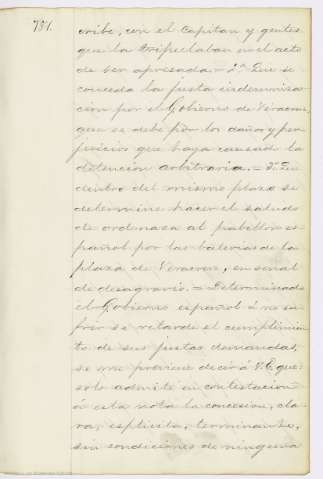 781.
cribe, con el Capitan y gentes
que la tripulaban en el acto
de ser apresada. - 2ª Que se
conceda la justa indemniza
cion por el Gobierno de Veracruz,
que se debe por los daños y per
juicios que haya causado la
detencion arbitraria. = 3ª Que
dentro del mismo plazo se
determine hacer el saludo
de ordenanza al pabellon es
pañol por las baterias de la
plaza de Veracruz, en señal
de desagravio. = Determinado
el Gobierno español á no su
frir se retarde el cumplimien
to de sus justas demandas,
se me previene decir á V.E. que
solo admite en contestacion
á esta nota la concesion, cla
ra, esplicita, terminante,
sin condiciones de ninguna